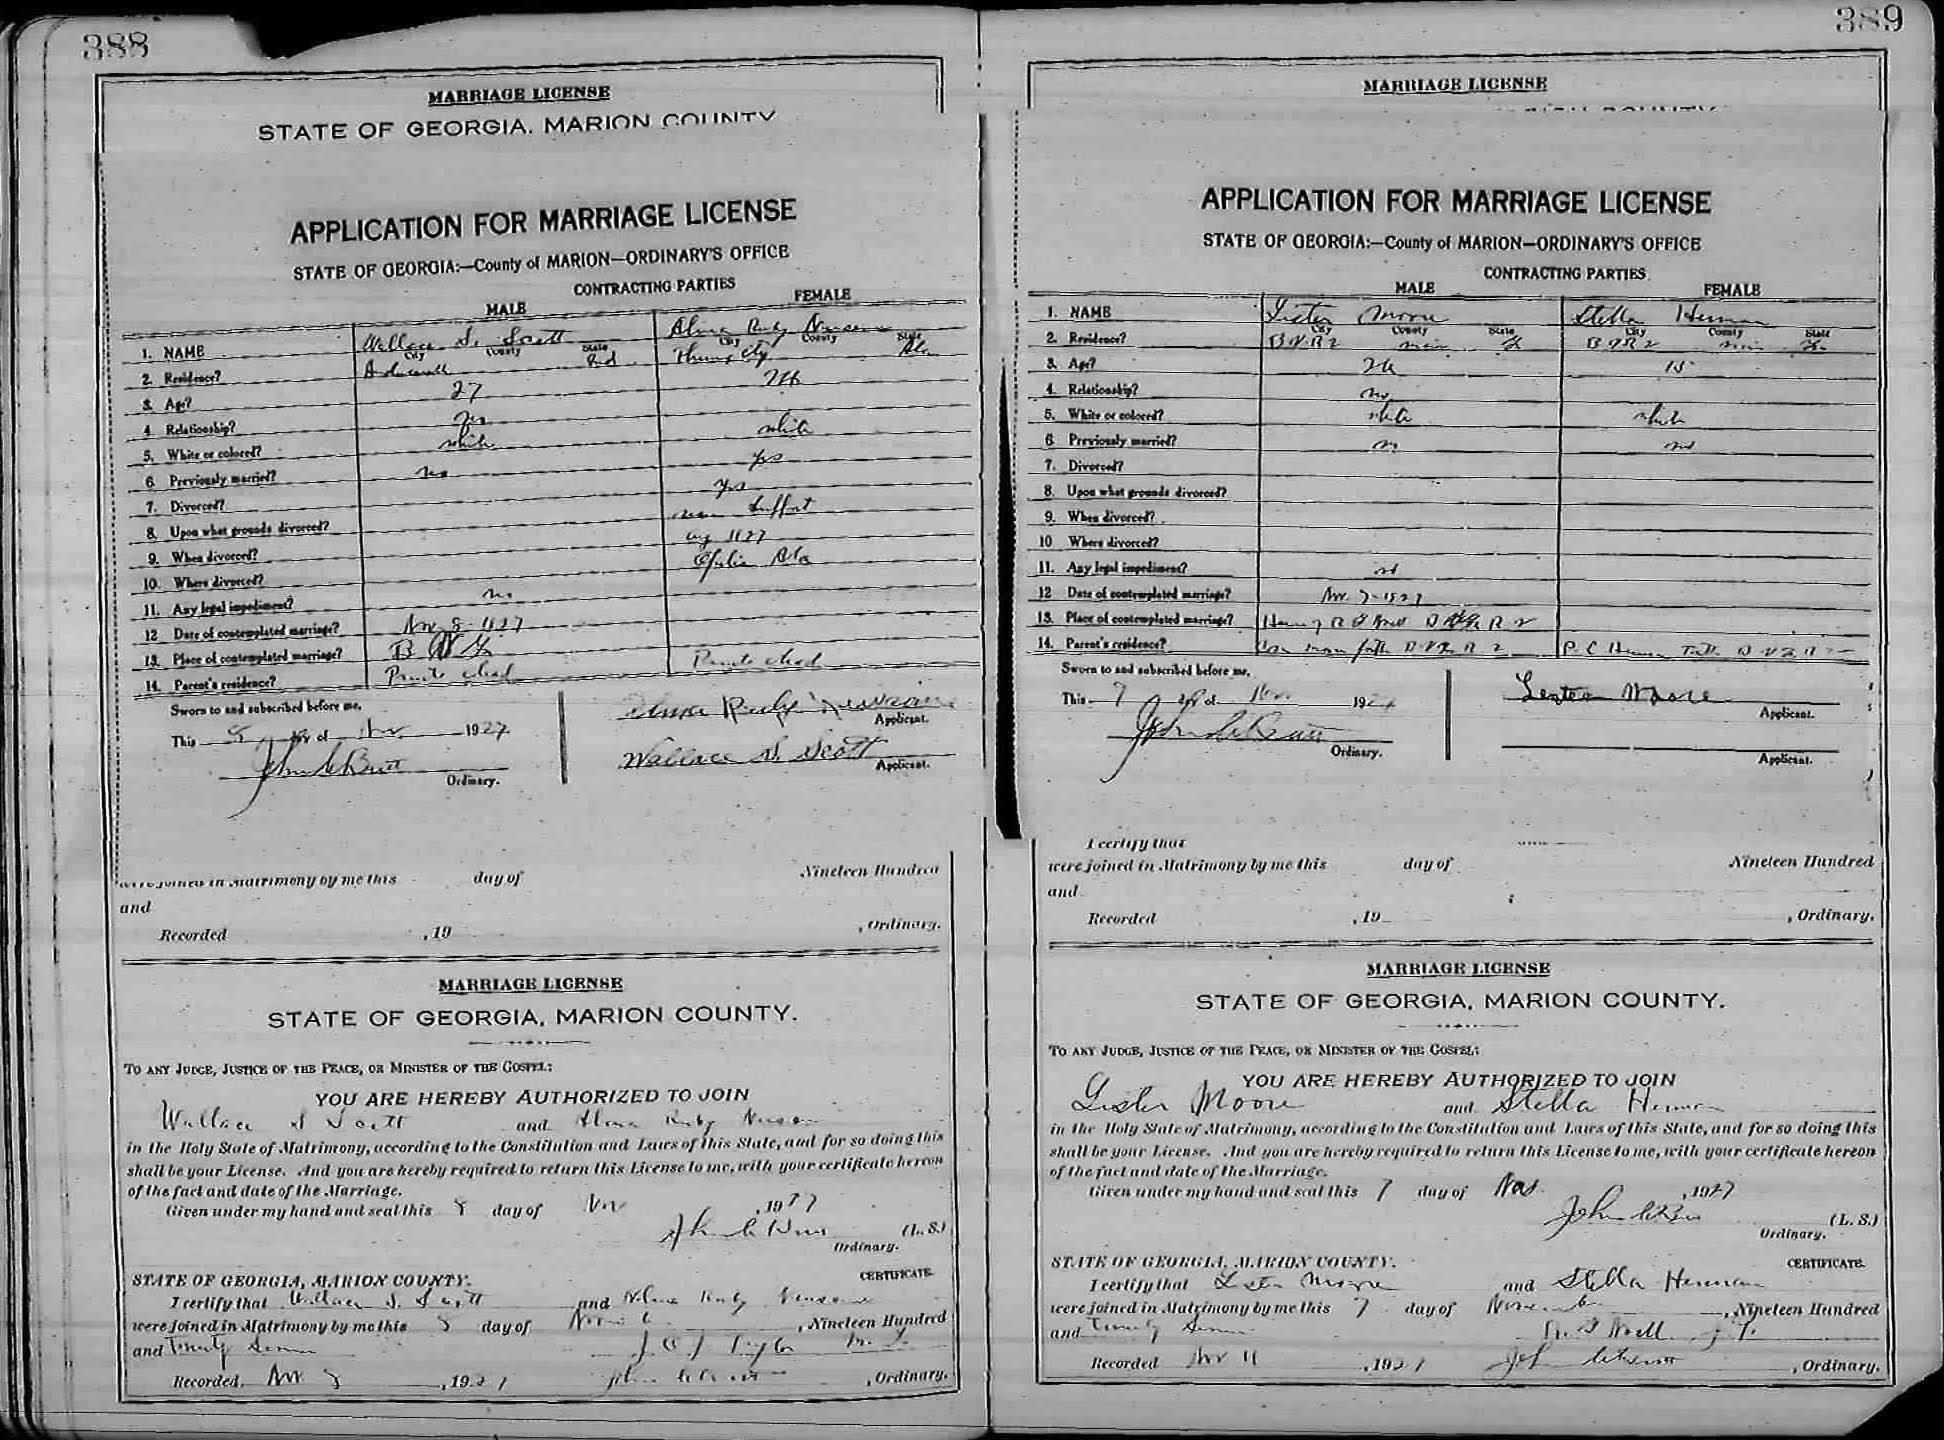 388
MARRIAGE LICENSE
STATE OF GEORGIA, MARION COUNTY
APPLICATION FOR MARRIAGE LICENSE
STATE OF GEORGIA:—County of MARION—ORDINARY'S OFFICE
CONTRACTING PARTIES
MALE FEMALE
1. NAME Wallace S. Scott Alma Ruby
City County State City County State
2. Residence? City Ala
3. Age? 27 26
4. Relationship? no
5. White or colored? white white
6. Previously married? no yes
7. Divorced? yes
8. Upon what grounds divorced? support
9. When divorced? Aug 1927
10. Where divorced? Ala
11. Any legal impediment? no
12 Date of contemplated marriage? Nov 8 1927
13. Place of contemplated marriage? B V Ga
14. Parent's residence? Parents dead Parents dead
Sworn to and subscribed before me,
This 8 day of Nov 1927
Alma Ruby
Applicant.
John C Butt
Ordinary.
Wallace S. Scott
Applicant.
were joined in Matrimony by me this day of Nineteen Hundred
and
Recorded , 19 , Ordinary.
MARRIAGE LICENSE
STATE OF GEORGIA, MARION COUNTY.
TO ANY JUDGE, JUSTICE OF THE PEACE, OR MINISTER OF THE GOSPEL:
YOU ARE HEREBY AUTHORIZED TO JOIN
Wallace S Scott and Alma Ruby
in the Holy State of Matrimony, according to the Constitution and Laws of this State, and for so doing this
shall be your License. And you are hereby required to return this License to me, with your certificate hereon
of the fact and date of the Marriage.
Given under my hand and seal this 8 day of Nov , 1927
John C Butt (L. S.)
Ordinary.
STATE OF GEORGIA, MARION COUNTY. CERTIFICATE.
I certify that Wallace S. Scott and Alma Ruby
were joined in Matrimony by me this 8 day of , Nineteen Hundred
and Twenty Seven J. Taylor M. G.
Recorded Nov 8 , 1927 John C Butt , Ordinary.
389
MARRIAGE LICENSE
APPLICATION FOR MARRIAGE LICENSE
STATE OF GEORGIA:—County of MARION—ORDINARY'S OFFICE
CONTRACTING PARTIES
MALE FEMALE
1. NAME Lister Moore Stella Herman
City County State City County State
2. Residence? B V R 2 Ga B V R 2 Ga
3. Age? 15
4. Relationship? no
5. White or colored? white white
6. Previously married? no no
7. Divorced?
8. Upon what grounds divorced?
9. When divorced?
10 Where divorced?
11. Any legal impediment? no
12 Date of contemplated marriage? Nov. 7-1927
13. Place of contemplated marriage? R 2
14. Parent's residence? R 2 Herman
Sworn to and subscribed before me,
This 7 day of Nov 1927
Lester Moore
Applicant.
John C Butt
Ordinary.
Applicant.
I certify that
were joined in Matrimony by me this day of Nineteen Hundred
and
Recorded , 19 , Ordinary.
MARRIAGE LICENSE
STATE OF GEORGIA, MARION COUNTY.
TO ANY JUDGE, JUSTICE OF THE PEACE, OR MINISTER OF THE GOSPEL:
YOU ARE HEREBY AUTHORIZED TO JOIN
Lister Moore and Stella Herman
in the Holy State of Matrimony, according to the Constitution and Laws of this State, and for so doing this
shall be your License. And you are hereby required to return this License to me, with your certificate hereon
of the fact and date of the Marriage.
Given under my hand and seal this 7 day of Nov. , 1927
John C Butt (L. S.)
Ordinary.
STATE OF GEORGIA, MARION COUNTY. CERTIFICATE.
I certify that Lister Moore and Stella Herman
were joined in Matrimony by me this 7 day of November , Nineteen Hundred
and Twenty Seven
Recorded Nov 11 , 1927 John C Butt , Ordinary.